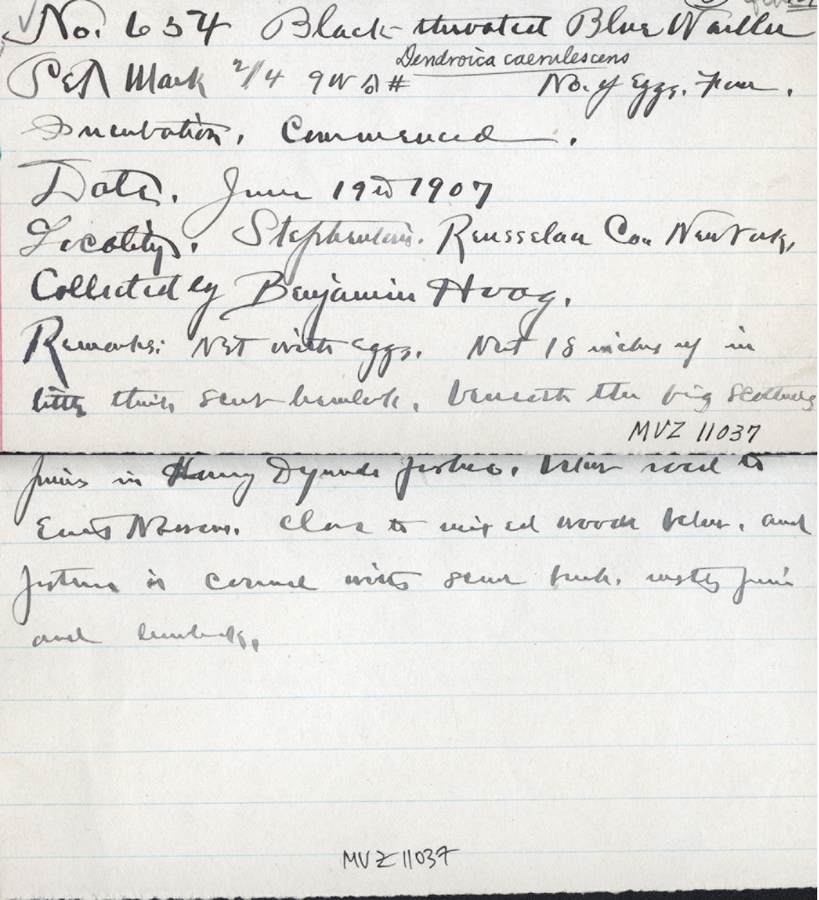 No. 654 Black-throated Blue Warbler
Dendroica caerulescens
Set Mark 2/4 No. of Eggs. Four.
Incubation, Commenced.
Date. June 19th 1907
Locality. Stephentown. Rensselaer Co. New York,
Collected by Benjamin Hoag.
Remarks: Nest with eggs. Nest 18 inches up in
little thick scrub hemlock, beneath the big scattering
MVZ 11037
pines in Henry pasture, below road to
close to mixed woods below, and
pasture is covered with scrub mostly pine
and hemlock,
MVZ 11037